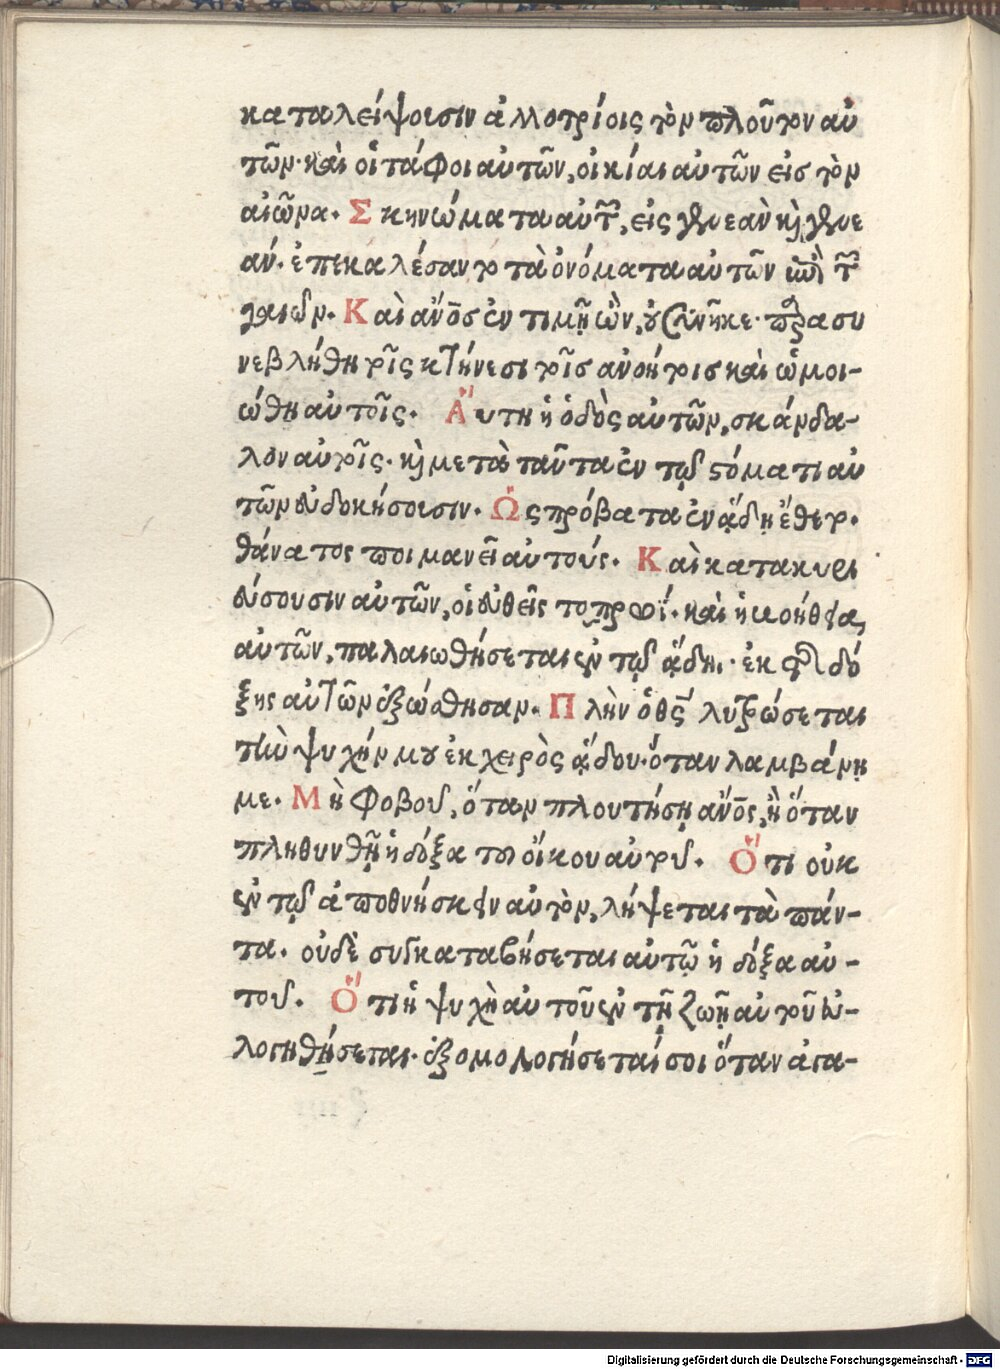 καταλείψουσιν ἀλλοτρίοις τὸν πλοῦτον αὐ
τῶν· καὶ οἱ τάφοι αὐτῶν, οἰκίαι αὐτῶν εἰς τὸν
αἰῶνα. Σκηνώματα αὐτῶν, εἰς γενεὰν καὶ γενε
άν. ἐπεκαλέσαντο τὰ ὀνόματα αὐτῶν ἐπὶ τῶν
γαιῶν. Καὶ ἄνος ἐν τιμῇ ὢν, οὐ συνῆκε· παρασυ
νεβλήθη τοῖς κτήνεσι τοῖς ἀνοήτοις καὶ ὡμοι-
ώθη αὐτοῖς. Αὕτη ἡ ὁδὸς αὐτῶν, σκάνδα-
λον αὐτοῖς· καὶ μετὰ ταῦτα ἐν τῷ στόματι αὐ
τῶν εὐδοκήσουσιν. Ὡς πρόβατα ἐν ᾅδῃ ἔθεντο.
θάνατος ποιμανεῖ αὐτούς. Καὶ κατακυρι
εύσουσιν αὐτῶν, οἱ εὐθεῖς τοπρωΐ. καὶ ἡ βοήθεια
αὐτῶν, παλαιωθήσεται ἐν τῷ ᾅδηι· ἐκ τῆς δό
ξης αὐτῶν ἐξώσθησαν. Πλὴν ὁ θς λυτρώσεται
τὴν ψυχήν μου ἐκ χειρὸς ᾅδου· ὅταν λαμβάνῃ
με. Μὴ φοβοῦ, ὅταν πλουτήσῃ ἄνος, ἢ ὅταν
πληθυνθῇ ἡ δόξα τοῦ οἴκου αὐτοῦ. Ὅτι οὐκ
ἐν τῷ ἀποθνήσκειν αὐτὸν, λήψεται τὰ πάν-
τα. οὐδὲ συγκαταβήσεται αὐτῷ ἡ δόξα αὐ-
τοῦ. Ὅτι ἡ ψυχὴ αὐτοῦ ἐν τῇ ζωῇ αὐτοῦ εὐ-
λογηθήσεται. ἐξομολογήσεταί σοι ὅταν ἀγα-
Digitalisierung gefördert durch die Deutsche Forschungsgemeinschaft - DFG